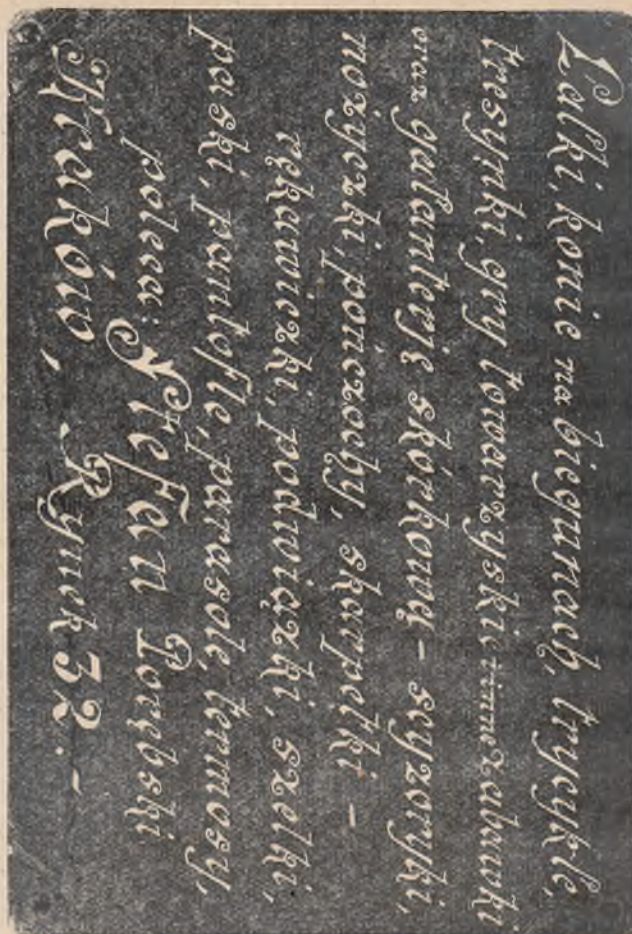 Lalki, konie na biegunach, trycykle,
tresynki, gry towarzyskie i inne zabawki
oraz galanterję skórkową - scyzoryki,
nożyczki, pończochy, skarpetki -
rękawiczki, podwiązki, szelki,
paski, pantofle, parasole, termosy,
poleca: Stefan Porębski
Kraków, Rynek 32. -